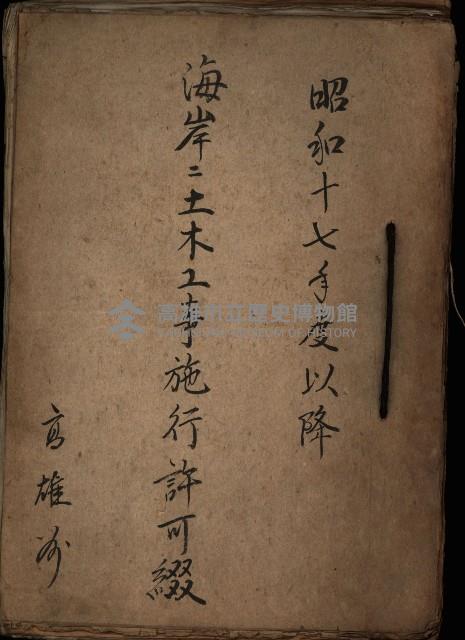 昭和十七年度以降
海岸ニ土木工事施行許可綴
高雄州
高雄市立歷史博物館
KAOHSIUNG MUSEUM OF HISTORY